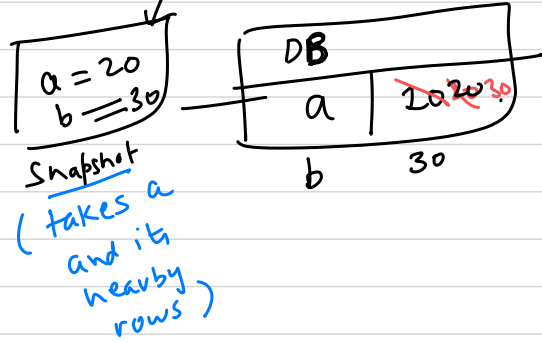 a = 20
b = 30
Snapshot
(takes a
and its
nearby
rows)
DB
a 10 20 30
b 30